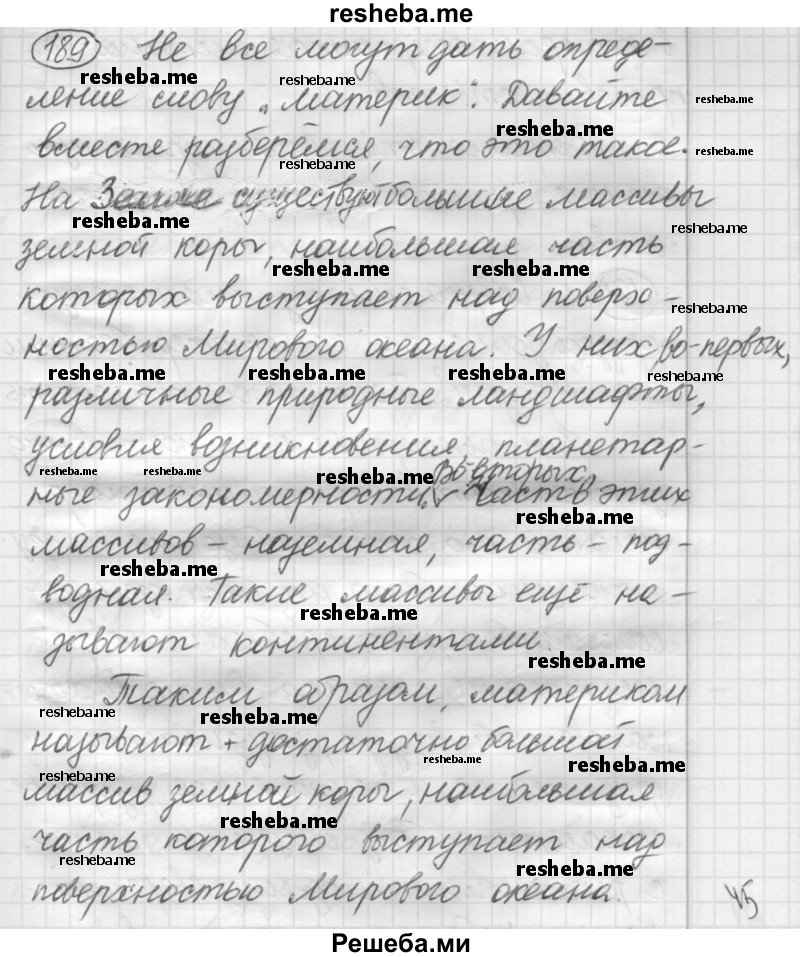 resheba.me
189 Не все могут дать опреде-
resheba.me resheba.me
ление слову „материк“. Давайте
resheba.me
resheba.me
вместе разберёмся, что это такое.
resheba.me resheba.me
На Земле существуют большие массивы
resheba.me resheba.me
земной коры, наибольшая часть
resheba.me resheba.me
которых выступает над поверх-
resheba.me
ностью Мирового океана. У них во-первых,
resheba.me resheba.me resheba.me resheba.me
различные природные ландшафты,
условия возникновения, планетар-
resheba.me resheba.me resheba.me во-вторых,
ные закономерности. V часть этих
resheba.me
массивов – наземная, часть – под-
resheba.me
водная. Такие массивы ещё на-
resheba.me
зывают континентами.
resheba.me
Таким образом, материком
resheba.me resheba.me
называют + достаточно большой
resheba.me resheba.me
resheba.me
массив земной коры, наибольшая
resheba.me
часть которого выступает над
resheba.me resheba.me
поверхностью Мирового океана.
45
Решеба.ми